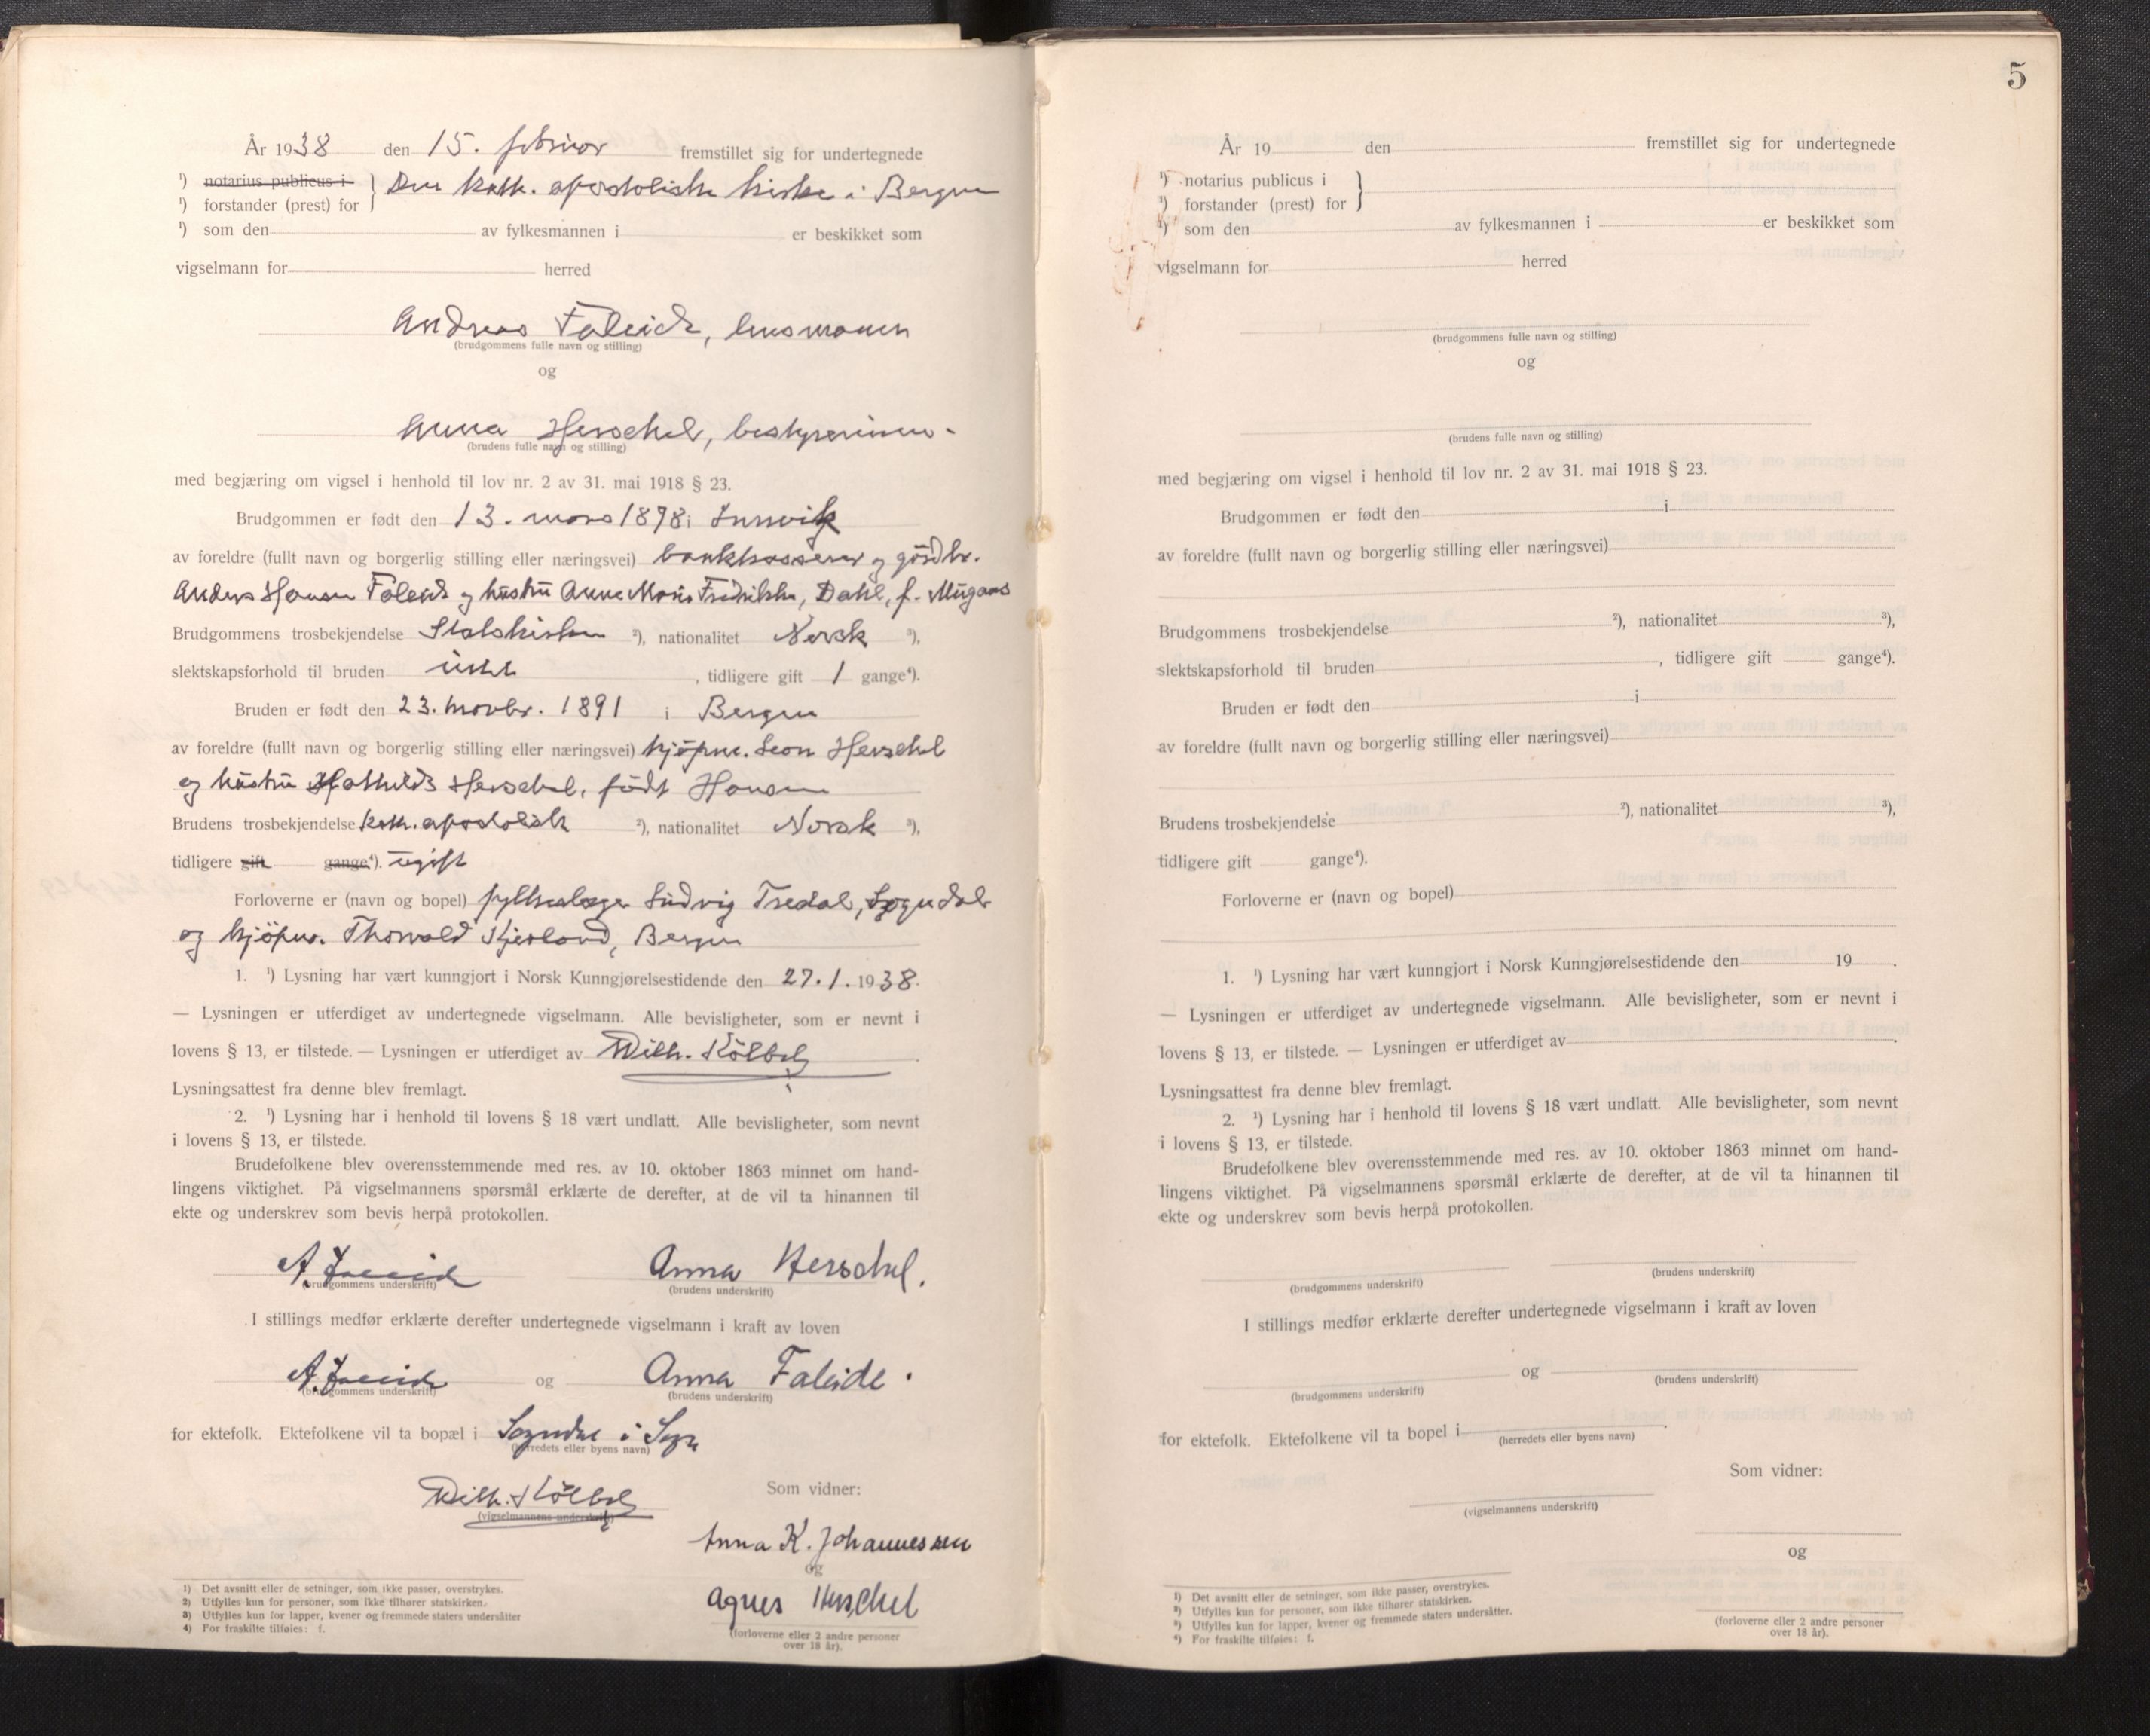 År 1938 den 15. februar fremstillet sig for undertegnede
¹) notarius publicus i
Den kath. apostoliske kirke i Bergen
¹) forstander (prest) for
¹) som den av fylkesmannen i er beskikket som
vigselmann for herred
Andreas Faleide, lensmann
(brudgommens fulle navn og stilling)
og
Anna Herschel, bestyrerinne
(brudens fulle navn og stilling)
med begjæring om vigsel i henhold til lov nr. 2 av 31. mai 1918 § 23.
Brudgommen er født den 13. mars 1898 i Innvik
av foreldre (fullt navn og borgerlig stilling eller næringsvei) bankkasserer og gårdbr.
Anders Hansen Faleide og hustru Anne Marie Fredrikke, Dahl, f. Mugaas
Brudgommens trosbekjendelse Statskirken ²), nationalitet Norsk ³),
slektskapsforhold til bruden intet , tidligere gift 1 gange⁴).
Bruden er født den 23. novbr. 1891 i Bergen
av foreldre (fullt navn og borgerlig stilling eller næringsvei) kjøpm. Leon Herschel
og hustru Mathilde Herschel, født Hansen
Brudens trosbekjendelse kath. apostolisk ²), nationalitet Norsk ³),
tidligere gift gange⁴). ugift
Forloverne er (navn og bopel) fylkeslege Ludvig Tredal, Sogndal
og kjøpm. Thorvald Kjesland, Bergen
1. ¹) Lysning har vært kunngjort i Norsk Kunngjørelsestidende den 27.1.1938.
— Lysningen er utferdiget av undertegnede vigselmann. Alle bevisligheter, som er nevnt i
lovens § 13, er tilstede. — Lysningen er utferdiget av Wilh. Kölbel
Lysningsattest fra denne blev fremlagt.
2. ¹) Lysning har i henhold til lovens § 18 vært undlatt. Alle bevisligheter, som nevnt
i lovens § 13, er tilstede.
Brudefolkene blev overensstemmende med res. av 10. oktober 1863 minnet om hand-
lingens viktighet. På vigselmannens spørsmål erklærte de derefter, at de vil ta hinannen til
ekte og underskrev som bevis herpå protokollen.
A. Faleide Anna Herschel.
(brudgommens underskrift) (brudens underskrift)
I stillings medfør erklærte derefter undertegnede vigselmann i kraft av loven
A. Faleide og Anna Faleide.
(brudgommens underskrift) (brudens underskrift)
for ektefolk. Ektefolkene vil ta bopæl i Sogndal i Sogn
(herredets eller byens navn)
Wilh. Kölbel
(vigselmannens underskrift)
Som vidner:
Anna K. Johannessen
og
Agnes Herschel
(forloverne eller 2 andre personer
over 18 år).
1) Det avsnitt eller de setninger, som ikke passer, overstrykes.
2) Utfylles kun for personer, som ikke tilhører statskirken.
3) Utfylles kun for lapper, kvener og fremmede staters undersåtter
4) For fraskilte tilføies: f.
5
År 19 den fremstillet sig for undertegnede
¹) notarius publicus i
¹) forstander (prest) for
¹) som den av fylkesmannen i er beskikket som
vigselmann for herred
(brudgommens fulle navn og stilling)
og
(brudens fulle navn og stilling)
med begjæring om vigsel i henhold til lov nr. 2 av 31. mai 1918 § 23.
Brudgommen er født den i
av foreldre (fullt navn og borgerlig stilling eller næringsvei)
Brudgommens trosbekjendelse ²), nationalitet ³),
slektskapsforhold til bruden , tidligere gift gange⁴).
Bruden er født den i
av foreldre (fullt navn og borgerlig stilling eller næringsvei)
Brudens trosbekjendelse ²), nationalitet ³),
tidligere gift gange⁴).
Forloverne er (navn og bopel)
1. ¹) Lysning har vært kunngjort i Norsk Kunngjørelsestidende den 19 .
— Lysningen er utferdiget av undertegnede vigselmann. Alle bevisligheter, som er nevnt i
lovens § 13, er tilstede. — Lysningen er utferdiget av .
Lysningsattest fra denne blev fremlagt.
2. ¹) Lysning har i henhold til lovens § 18 vært undlatt. Alle bevisligheter, som nevnt
i lovens § 13, er tilstede.
Brudefolkene blev overensstemmende med res. av 10. oktober 1863 minnet om hand-
lingens viktighet. På vigselmannens spørsmål erklærte de derefter, at de vil ta hinannen til
ekte og underskrev som bevis herpå protokollen.
(brudgommens underskrift) (brudens underskrift)
I stillings medfør erklærte derefter undertegnede vigselmann i kraft av loven
og
(brudgommens underskrift) (brudens underskrift)
for ektefolk. Ektefolkene vil ta bopel i .
(herredets eller byens navn)
Som vidner:
(vigselmannens underskrift)
og
(forloverne eller 2 andre personer
over 18 år).
1) Det avsnitt eller de setninger, som ikke passer, overstrykes.
2) Utfylles kun for personer, som ikke tilhører statskirken.
3) Utfylles kun for lapper, kvener og fremmede staters undersåtter.
4) For fraskilte tilføies: f.